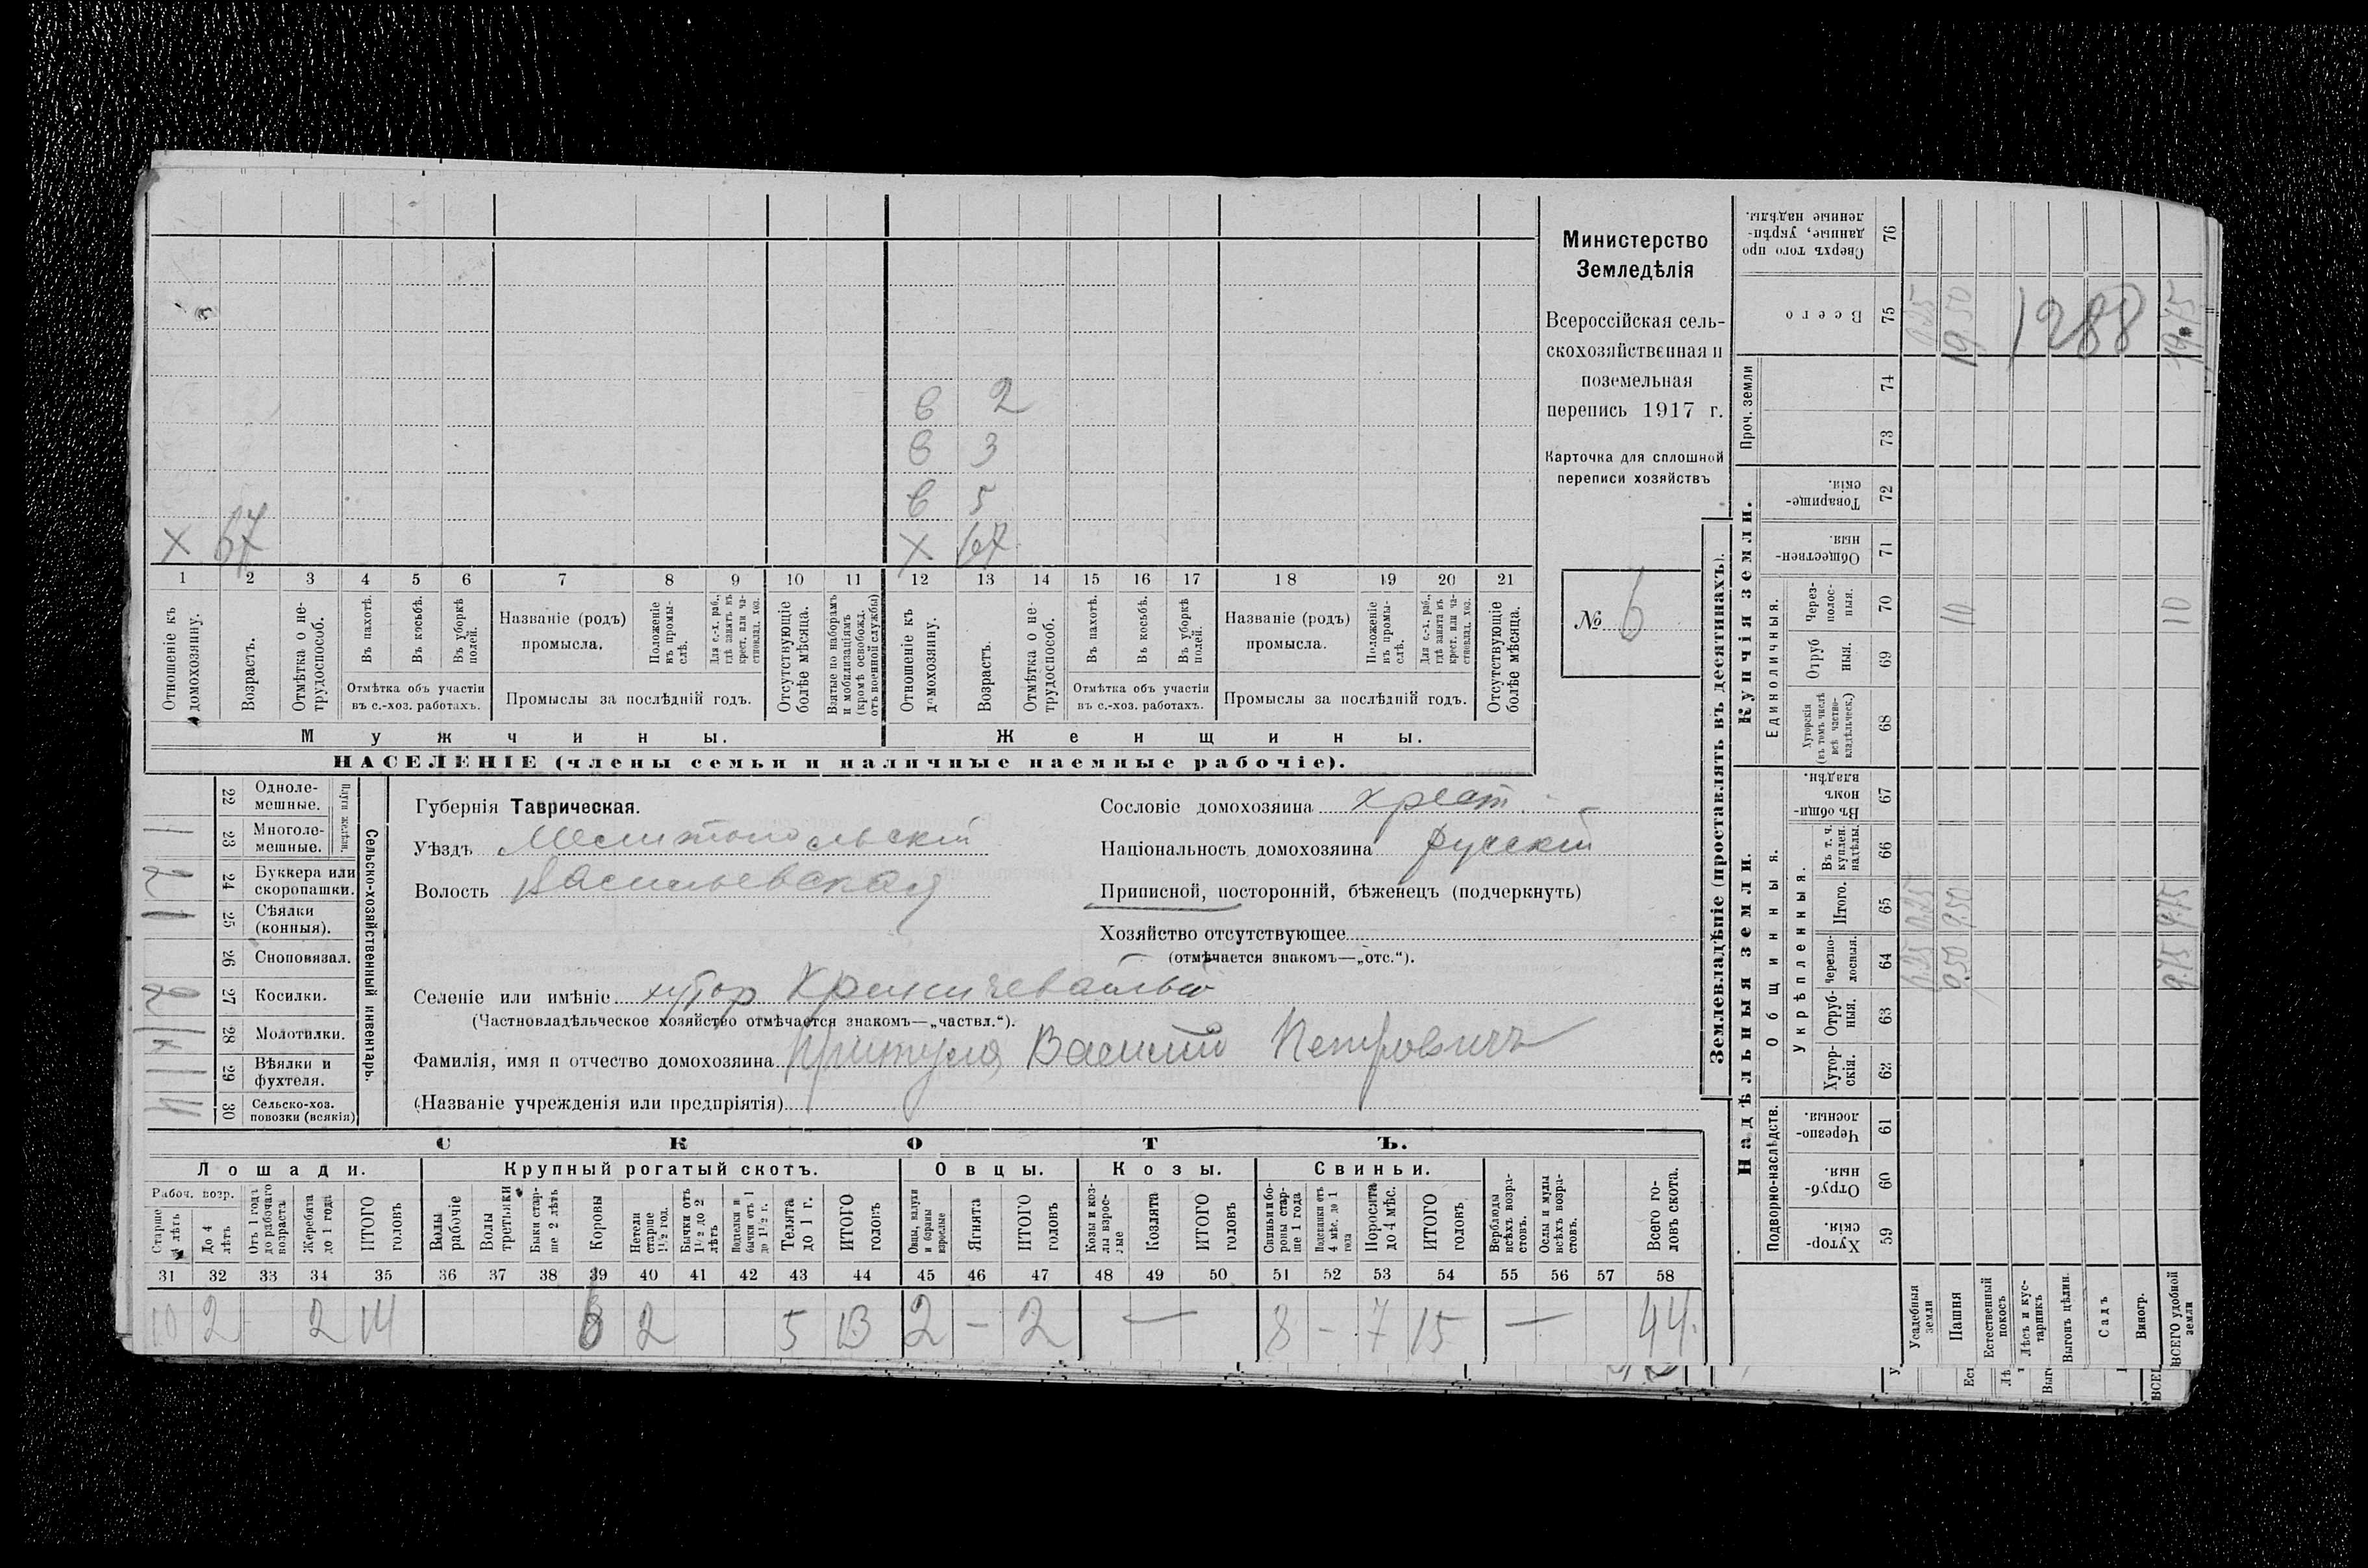 в 2
в 3
в 5
х 67 х 67
1 2 3 4 5 6 7 8 9 10 11 12 13 14 15 16 17 18 19 20 21
Отношеніе къ домохозяину.
Возрастъ.
Отмѣтка о не-
трудоспособ.
Въ пахотѣ.
Въ косьбѣ.
Въ уборкѣ
полей.
Отмѣтка объ участіи
въ с.-хоз. работахъ.
Названіе (родъ)
промысла.
Положеніе
въ промы-
слѣ.
Для с.-х. раб.,
гдѣ занятъ въ
крест. или ча-
стновлад. хоз.
Промыслы за послѣдній годъ.
Отсутствующіе
болѣе мѣсяца.
Взятые по наборамъ
и мобилизаціямъ
(кромѣ освобожд.
отъ военной службы)
Отношеніе къ
домохозяину.
Возрастъ.
Отмѣтка о не-
трудоспособ.
Въ пахотѣ.
Въ косьбѣ.
Въ уборкѣ
полей.
Отмѣтка объ участіи
въ с.-хоз. работахъ.
Названіе (родъ)
промысла.
Положеніе
въ промы-
слѣ.
Для с.-х. раб.,
гдѣ занята въ
крест. или ча-
стновлад. хоз.
Промыслы за послѣдній годъ.
Отсутствующіе
болѣе мѣсяца.
Мужчины. Женщины.
НАСЕЛЕНІЕ (члены семьи и наличные наемные рабочіе).
Министерство
Земледѣлія
Всероссійская сель-
скохозяйственная и
поземельная
перепись 1917 г.
Карточка для сплошной
переписи хозяйствъ
№ 6
Сельско-хозяйственный инвентарь.
Плуги желѣзн.
22 Одноле-
мешные.
1 23 Многоле-
мешные.
2 24 Буккера или
скоропашки.
1 25 Сѣялки
(конныя).
26 Сноповязал.
2 27 Косилки.
28 Молотилки.
1 29 Вѣялки и
фухтеля.
30 Сельско-хоз.
повозки (всякія)
Губернія Таврическая.
Уѣздъ Мелитопольскій
Волость Васильевская
Сословіе домохозяина крест.
Національность домохозяина русскій
Приписной, посторонній, бѣженецъ (подчеркнуть)
Хозяйство отсутствующее
(отмѣчается знакомъ—„отс.“).
Селеніе или имѣніе хутор
(Частновладѣльческое хозяйство отмѣчается знакомъ—„частвл.“).
Фамилія, имя и отчество домохозяина Притула Василій Петровичъ
(Названіе учрежденія или предпріятія)
СКОТЪ.
Лошади. Крупный рогатый скотъ. Овцы. Козы. Свиньи.
Рабоч. возр.
Старше
4 лѣтъ
До 4
лѣтъ
Отъ 1 года
до рабочаго
возраста
Жеребята
до 1 года
ИТОГО
головъ
Волы
рабочіе
Волы
третьяки
Быки стар-
ше 2 лѣтъ
Коровы
Нетели
старше
1½ год.
Бычки отъ
1½ до 2
лѣтъ
Подтелки и
бычки отъ 1
до 1½ г.
Телята
до 1 г.
ИТОГО
головъ
Овцы, валухи
и бараны
взрослые
Ягнята
ИТОГО
головъ
Козы и коз-
лы взрос-
лые
Козлята
ИТОГО
головъ
Свиньи и бо-
ровы стар-
ше 1 года
Подсвинки отъ
4 мѣс. до 1
года
Поросята
до 4 мѣс.
ИТОГО
головъ
Верблюды
всѣхъ возра-
стовъ.
Ослы и мулы
всѣхъ возра-
стовъ.
Всего го-
ловъ скота.
31 32 33 34 35 36 37 38 39 40 41 42 43 44 45 46 47 48 49 50 51 52 53 54 55 56 57 58
10 2 2 14 6 2 5 13 2 – 2 — 8 – 7 15 — 44.
Землевладѣніе (проставлять въ десятинахъ).
Надѣльныя земли. Купчія земли.
Подворно-наслѣдств. Общинныя. Укрѣпленныя. Единоличныя. Проч. земли
Хутор-
скія. 59
Отруб-
ныя. 60
Черезпо-
лосныя. 61
Хутор-
скія. 62
Отруб-
ныя. 63
Черезпо-
лосныя. 64
Итого. 65
Въ т. ч.
куплен.
надѣлы. 66
Въ общин-
номъ
владѣн. 67
Хуторскія
(въ томъ числѣ
всѣ частно-
владѣльческ.) 68
Отруб
ныя. 69
Через-
полос-
ныя. 70
Обществен-
ныя. 71
Товарище-
скія. 72
73
74
Всего 75
Сверхъ того про
данные, укрѣп-
ленные надѣлы. 76
Усадебныя
земли 0.25 0.25 0.25
Пашня 9.50 9.50 10 19.50
Естественный
покосъ
Лѣсъ и кус-
тарникъ
Выгонъ цѣлин.
Садъ
Виногр.
ВСЕГО удобной
земли 9.75 9.75 10 19.75
1288